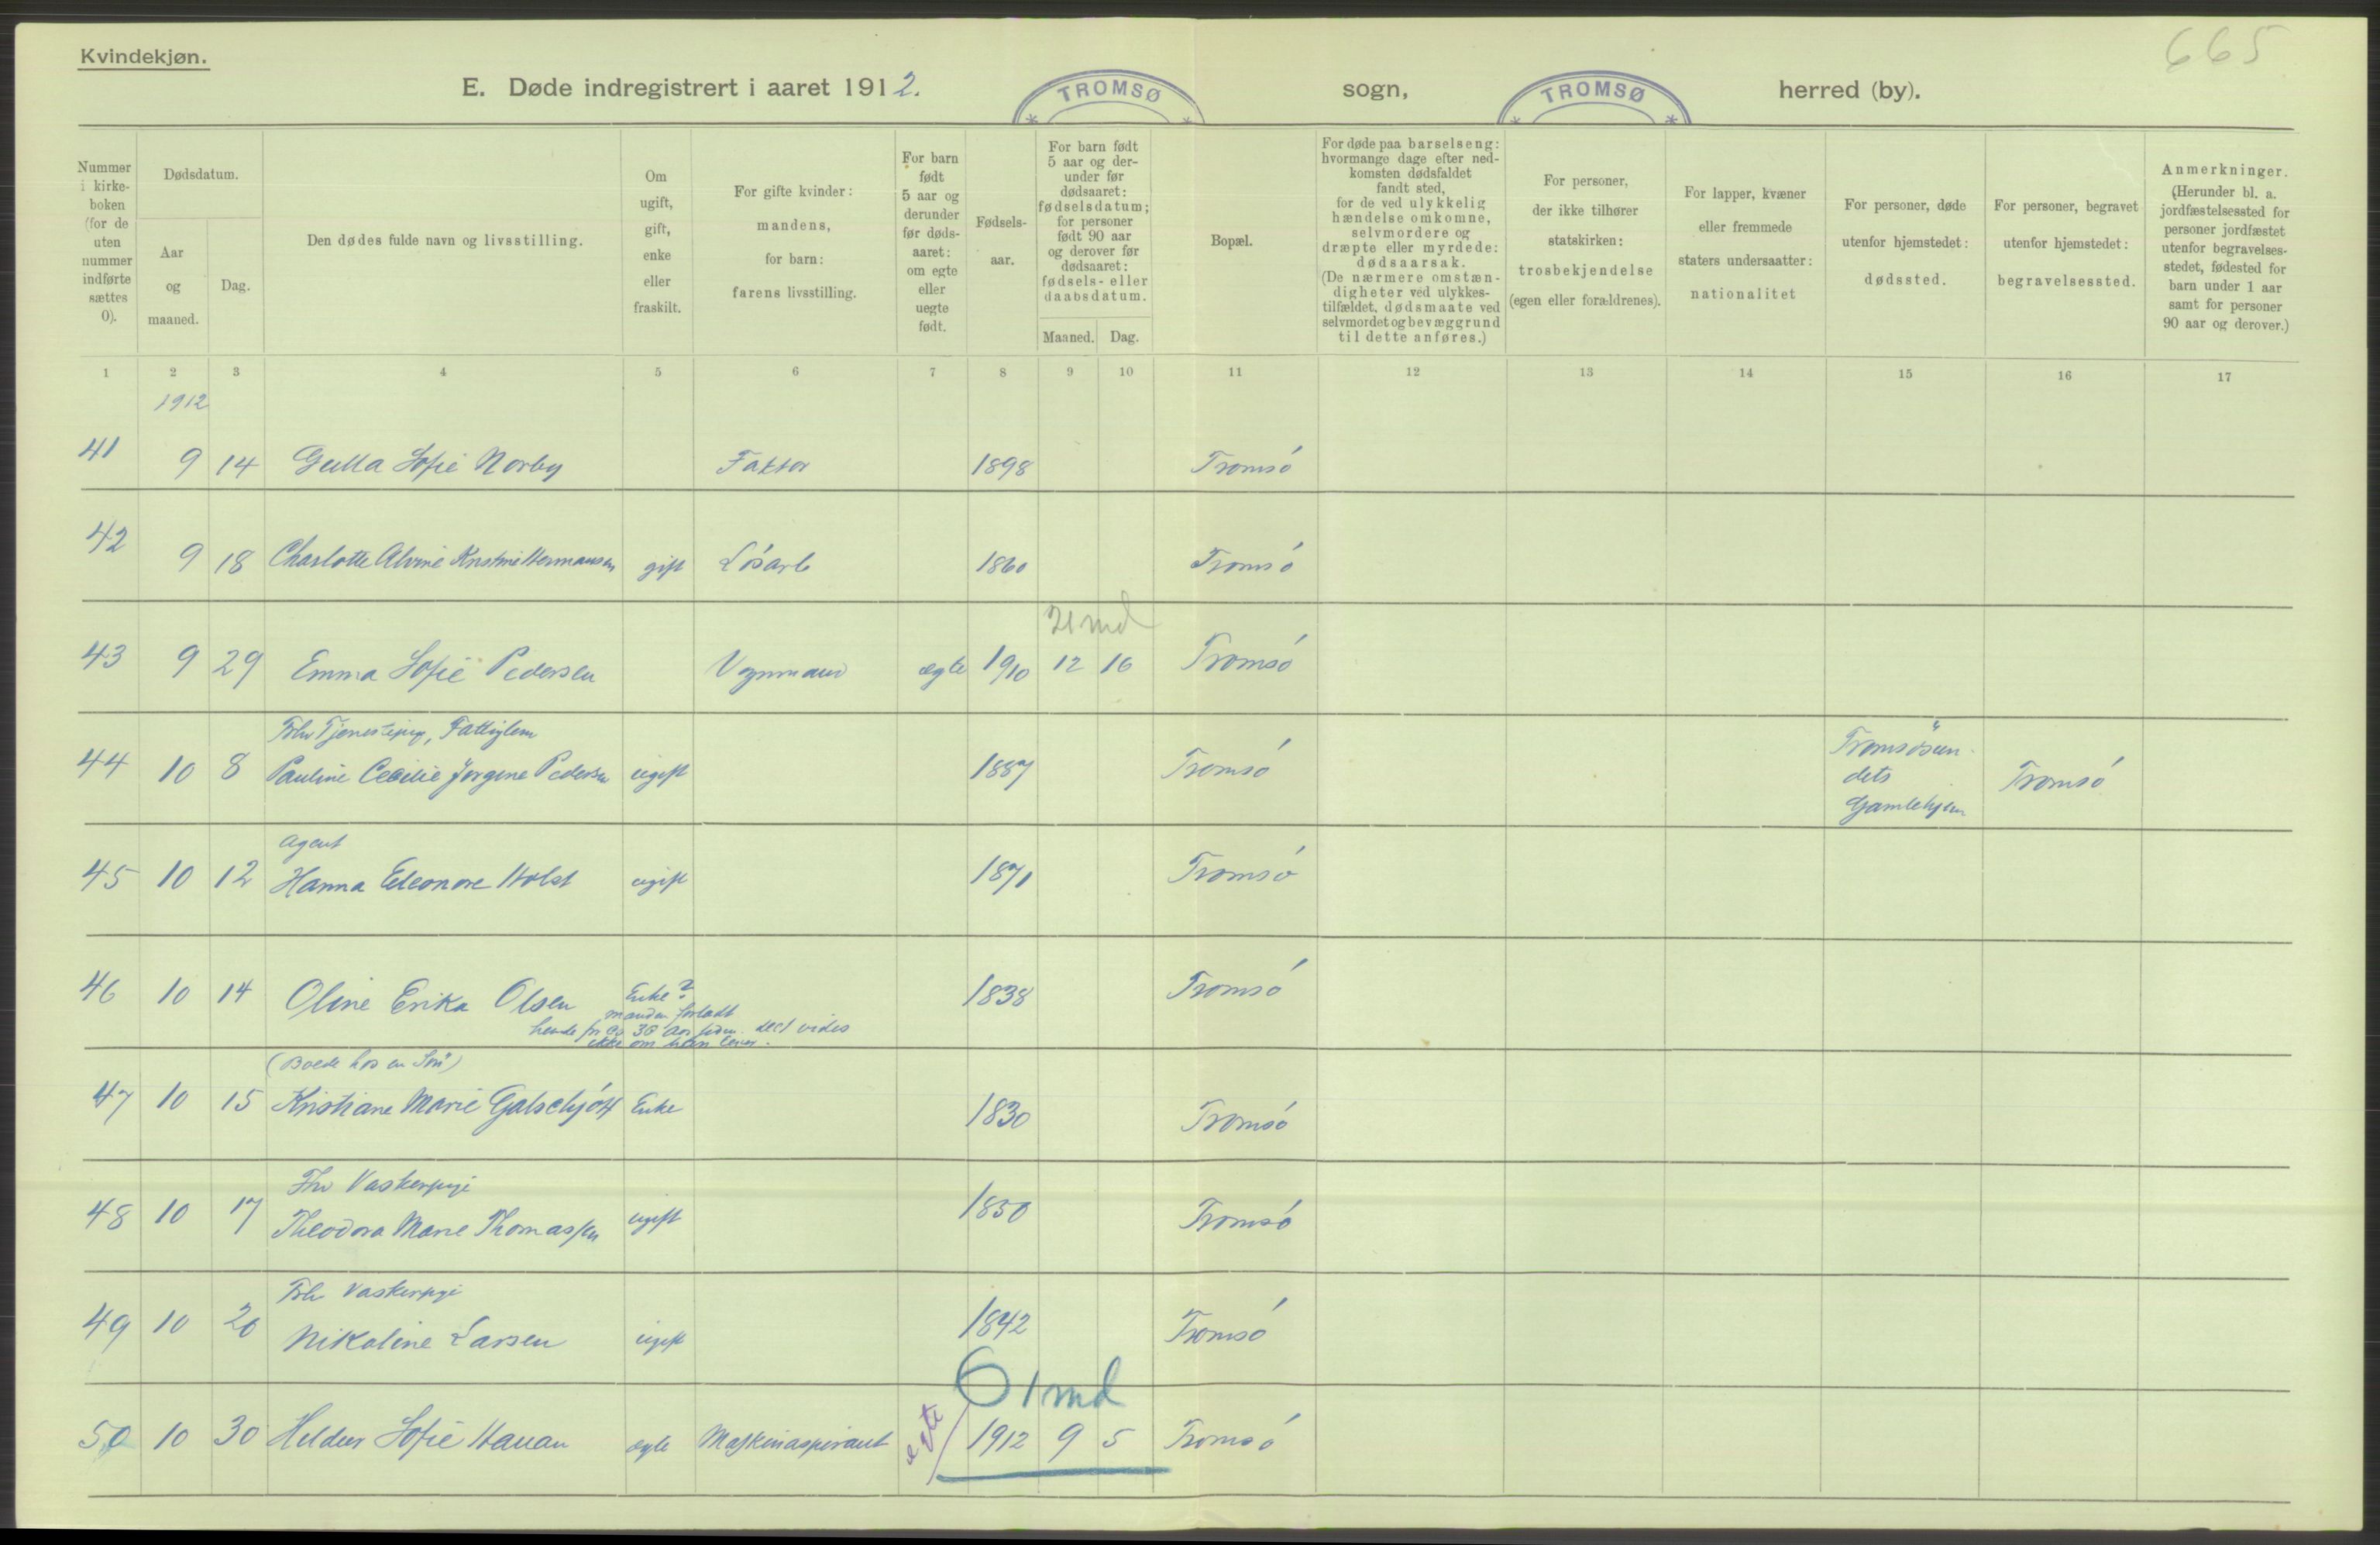 Kvindekjøn.
665
E. Døde indregistrert i aaret 1912. TROMSØ sogn, TROMSØ herred (by).
Nummer i kirkeboken (for de uten nummer indførte sættes 0).
Dødsdatum.
Aar og maaned.
Dag.
Den dødes fulde navn og livsstilling.
Om ugift, gift, enke eller fraskilt.
For gifte kvinder: mandens, for barn: farens livsstilling.
For barn født 5 aar og derunder før dødsaaret: om egte eller uegte født.
Fødselsaar.
For barn født 5 aar og derunder før dødsaaret: fødselsdatum; for personer født 90 aar og derover før dødsaaret: fødsels- eller daabsdatum.
Maaned. Dag.
Bopæl.
For døde paa barselseng: hvormange dage efter nedkomsten dødsfaldet fandt sted, for de ved ulykkelig hændelse omkomne, selvmordere og dræpte eller myrdede: dødsaarsak. (De nærmere omstændigheter ved ulykkestilfældet, dødsmaate ved selvmordet og bevæggrund til dette anføres.)
For personer, der ikke tilhører statskirken: trosbekjendelse (egen eller forældrenes).
For lapper, kvæner eller fremmede staters undersaatter: nationalitet
For personer, døde utenfor hjemstedet: dødssted.
For personer, begravet utenfor hjemstedet: begravelsessted.
Anmerkninger. (Herunder bl. a. jordfæstelsessted for personer jordfæstet utenfor begravelsesstedet, fødested for barn under 1 aar samt for personer 90 aar og derover.)
1 2 3 4 5 6 7 8 9 10 11 12 13 14 15 16 17
1912
41 9 14 Gulla Sofie Norby Faktor 1898 Tromsó
42 9 18 Charlotte Alvine Kristine Hermansen gift Lósarb 1860 Tromsó
21 md
43 9 29 Emma Sofie Pedersen Vognmand egte 1910 12 16 Tromsó
Fhv Tjenestepige, Fattiglem
44 10 8 Pauline Cecilie Jorgine Pedersen ugift 1887 Tromsó Tromsøsundets Gamlehjem Tromsó
Agent
45 10 12 Hanna Eleonore Holst ugift 1871 Tromsó
46 10 14 Oline Erika Olsen Enke? 1838 Tromsó
manden forladt
hende for ca 30 aar siden. det vides
ikke om han lever.
(Boede hos en Són)
47 10 15 Kristiane Marie Galschjótt Enke 1830 Tromsó
Fhv Vaskerpige
48 10 17 Theodora Marie Thomassen ugift 1850 Tromsó
Fhv Vaskerpige
49 10 20 Nikoline Larsen ugift 1842 Tromsó
0 1 md
50 10 30 Sofie Hauan egte Maskinaspirant egte 1912 9 5 Tromsó